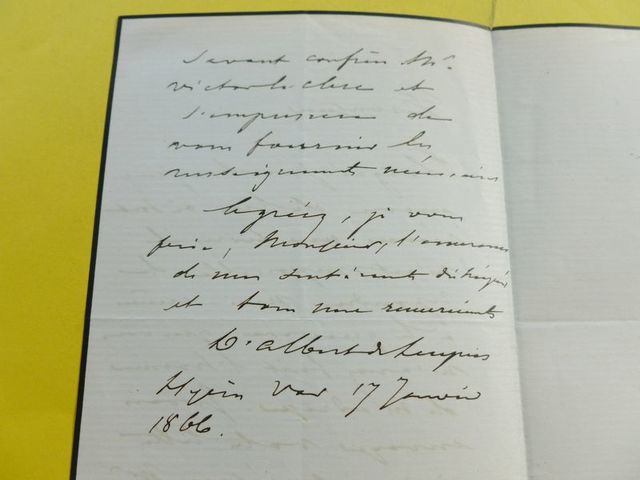 Savant confrère Mr
Victor Le Clerc et
s'empressera de
vous fournir les
renseignements nécessaires
Agréez, je vous
prie, Monsieur, l'assurance
de mes sentiments distingués
et tous mes remerciements
Dr Albert de
Hyères Var 17 Janvier
1866.